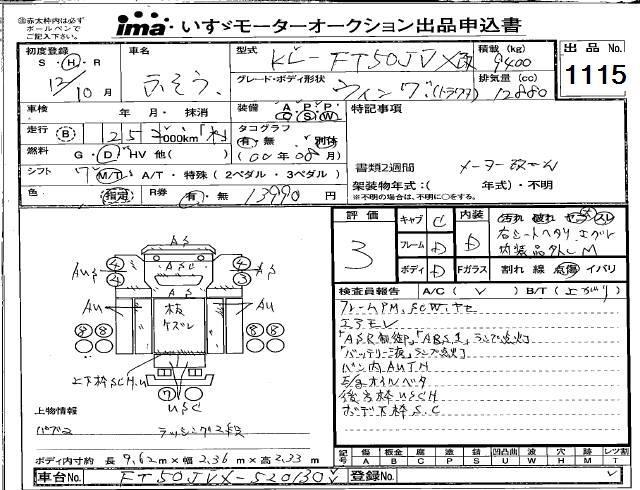 ㊟赤太枠内は必ず
ボールペンで
ご記入下さい。
ima いすゞモーターオークション出品申込書
初度登録
S・H・R
12/10月
車名
ふそう
型式
KL-FT50JVX改
積載 (kg)
9400
出品No.
1115
グレード・ボディ形状
ウィング(トラクタ)
排気量 (cc)
12880
車検 年 月・抹消
装備 A P P C S W
特記事項
走行 B 25 000km
タコグラフ
有・無 別体
(00年00月)
燃料 G・D HV 他( )
書類2週間
シフト M/T・A/T・特殊(2ペダル・3ペダル)
架装物年式:( 年式)・不明
※不明の場合は、不明に○をする。
色 指定
R券 有・無 13990 円
評価
3
キャブ C
フレーム D
ボディ D
内装 D
Fガラス
汚れ 破れ コゲ スレ
右シートヘタリ エグレ
内装品外し M
割れ 線 点傷 イバリ
検査員報告 A/C( ✓ ) B/T( 上がり )
フレームPM、SCW、ヤセ
エアモレ
「ABS」ランプ点灯
「バッテリー液」ランプ点灯
バン内AUTH
E/gオイルベタ
後方枠USCH
ボデ下枠S.C
AS
ASC
AS
AUS
AUS
④ ④ ④ ③
AU
AU
板
ケズレ
⑧⑧ ⑧⑧
上下枠SCH.U
⑦
USC
上物情報
ラッシング2段
ボディ内寸約 長 9.62m×幅 2.36m×高 2.33m
記号
傷 板金 腐 塗 錆 凸凹曲 割 穴 汚 レツ割
A B C P S U W H M T
車台No. FT50JVX-520130
登録No.